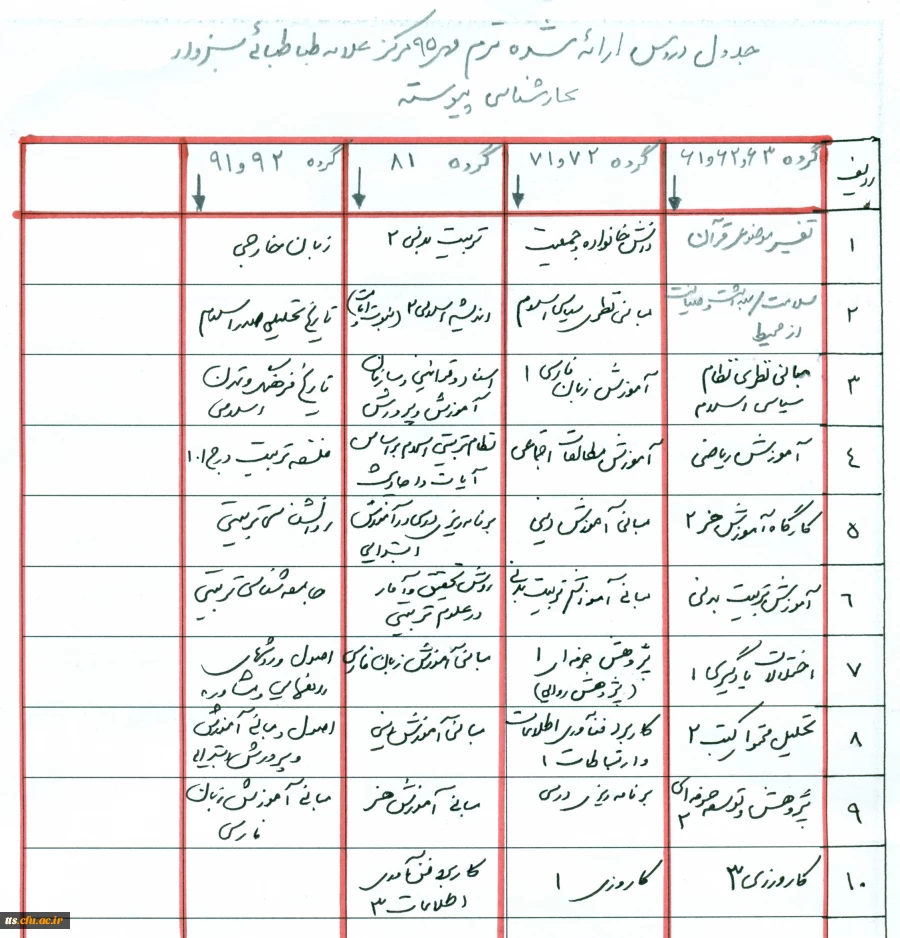 جدول دروس ارائه شده ترم مهر ۹۵ مرکز علامه طباطبائی سبزوار
کارشناسی پیوسته
ردیف گروه ۶۳و۶۲و۶۱ گروه ۷۲ و ۷۱ گروه ۸۱ گروه ۹۲ و ۹۱
۱ تفسیر موضوعی قرآن دانش خانواده و جمعیت تربیت بدنی ۲ زبان خارجی
۲ سلامت/بهداشت و صیانت از محیط مبانی نظری سیاسی اسلام اندیشه اسلامی ۲ (نبوت و امامت) تاریخ تحلیلی صدر اسلام
۳ مبانی نظری نظام سیاسی اسلام آموزش زبان فارسی ۱ اسناد و قوانین و سازمان آموزش و پرورش تاریخ فرهنگ و تمدن اسلامی
۴ آموزش ریاضی آموزش مطالعات اجتماعی نظام تربیتی اسلام براساس آیات و احادیث فلسفه تربیت در ج.ا.ا
۵ کارگاه آموزش هنر ۲ مبانی آموزش دینی برنامه ریزی درسی در آموزش ابتدایی روانشناسی تربیتی
۶ آموزش تربیت بدنی مبانی آموزش تربیت بدنی روش تحقیق و آمار در علوم تربیتی جامعه شناسی تربیتی
۷ اختلالات یادگیری ۱ پژوهش حرفه ای ۱ (پژوهش روایی) مبانی آموزش زبان فارسی اصول و روشهای راهنمایی و مشاوره
۸ تحلیل محتوا کتب ۲ کاربرد فنآوری اطلاعات و ارتباطات ۱ مبانی آموزش دینی اصول و مبانی آموزش و پرورش ابتدایی
۹ پژوهش و توسعه حرفه ای ۲ برنامه ریزی درسی مبانی آموزش هنر مبانی آموزش زبان فارسی
۱۰ کارورزی ۳ کاروزی ۱ کاربرد فن آوری اطلاعات ۳
its.cfu.ac.ir